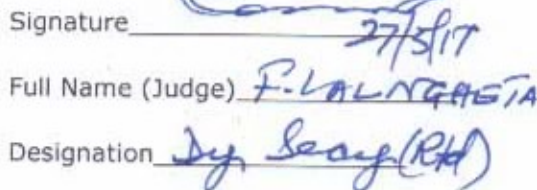 Signature
27/5/17
Full Name (Judge) F. LALNGHETA
Designation Dy, Secy (Rtd)